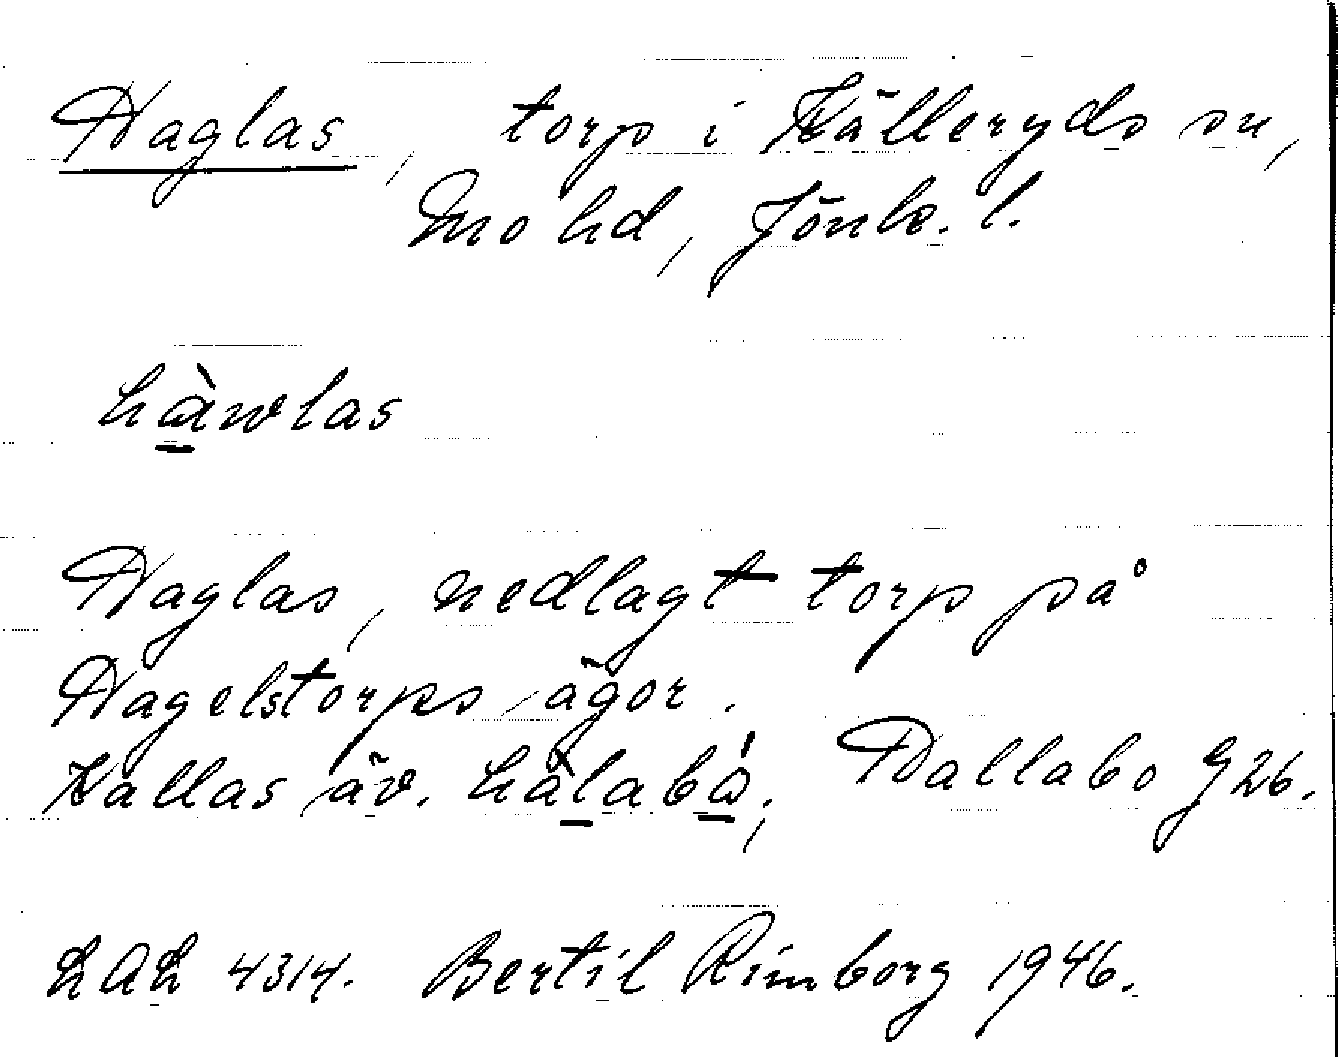 Haglas, torp i Källeryds sn,
Mo hd, Jönk. l.
hàwlas
Haglas, nedlagt torp på
Hagelstorps ägor.
Kallas äv. hàlabá, Dallabo G 26.
LAL 4314. Bertil Rimborg 1946.